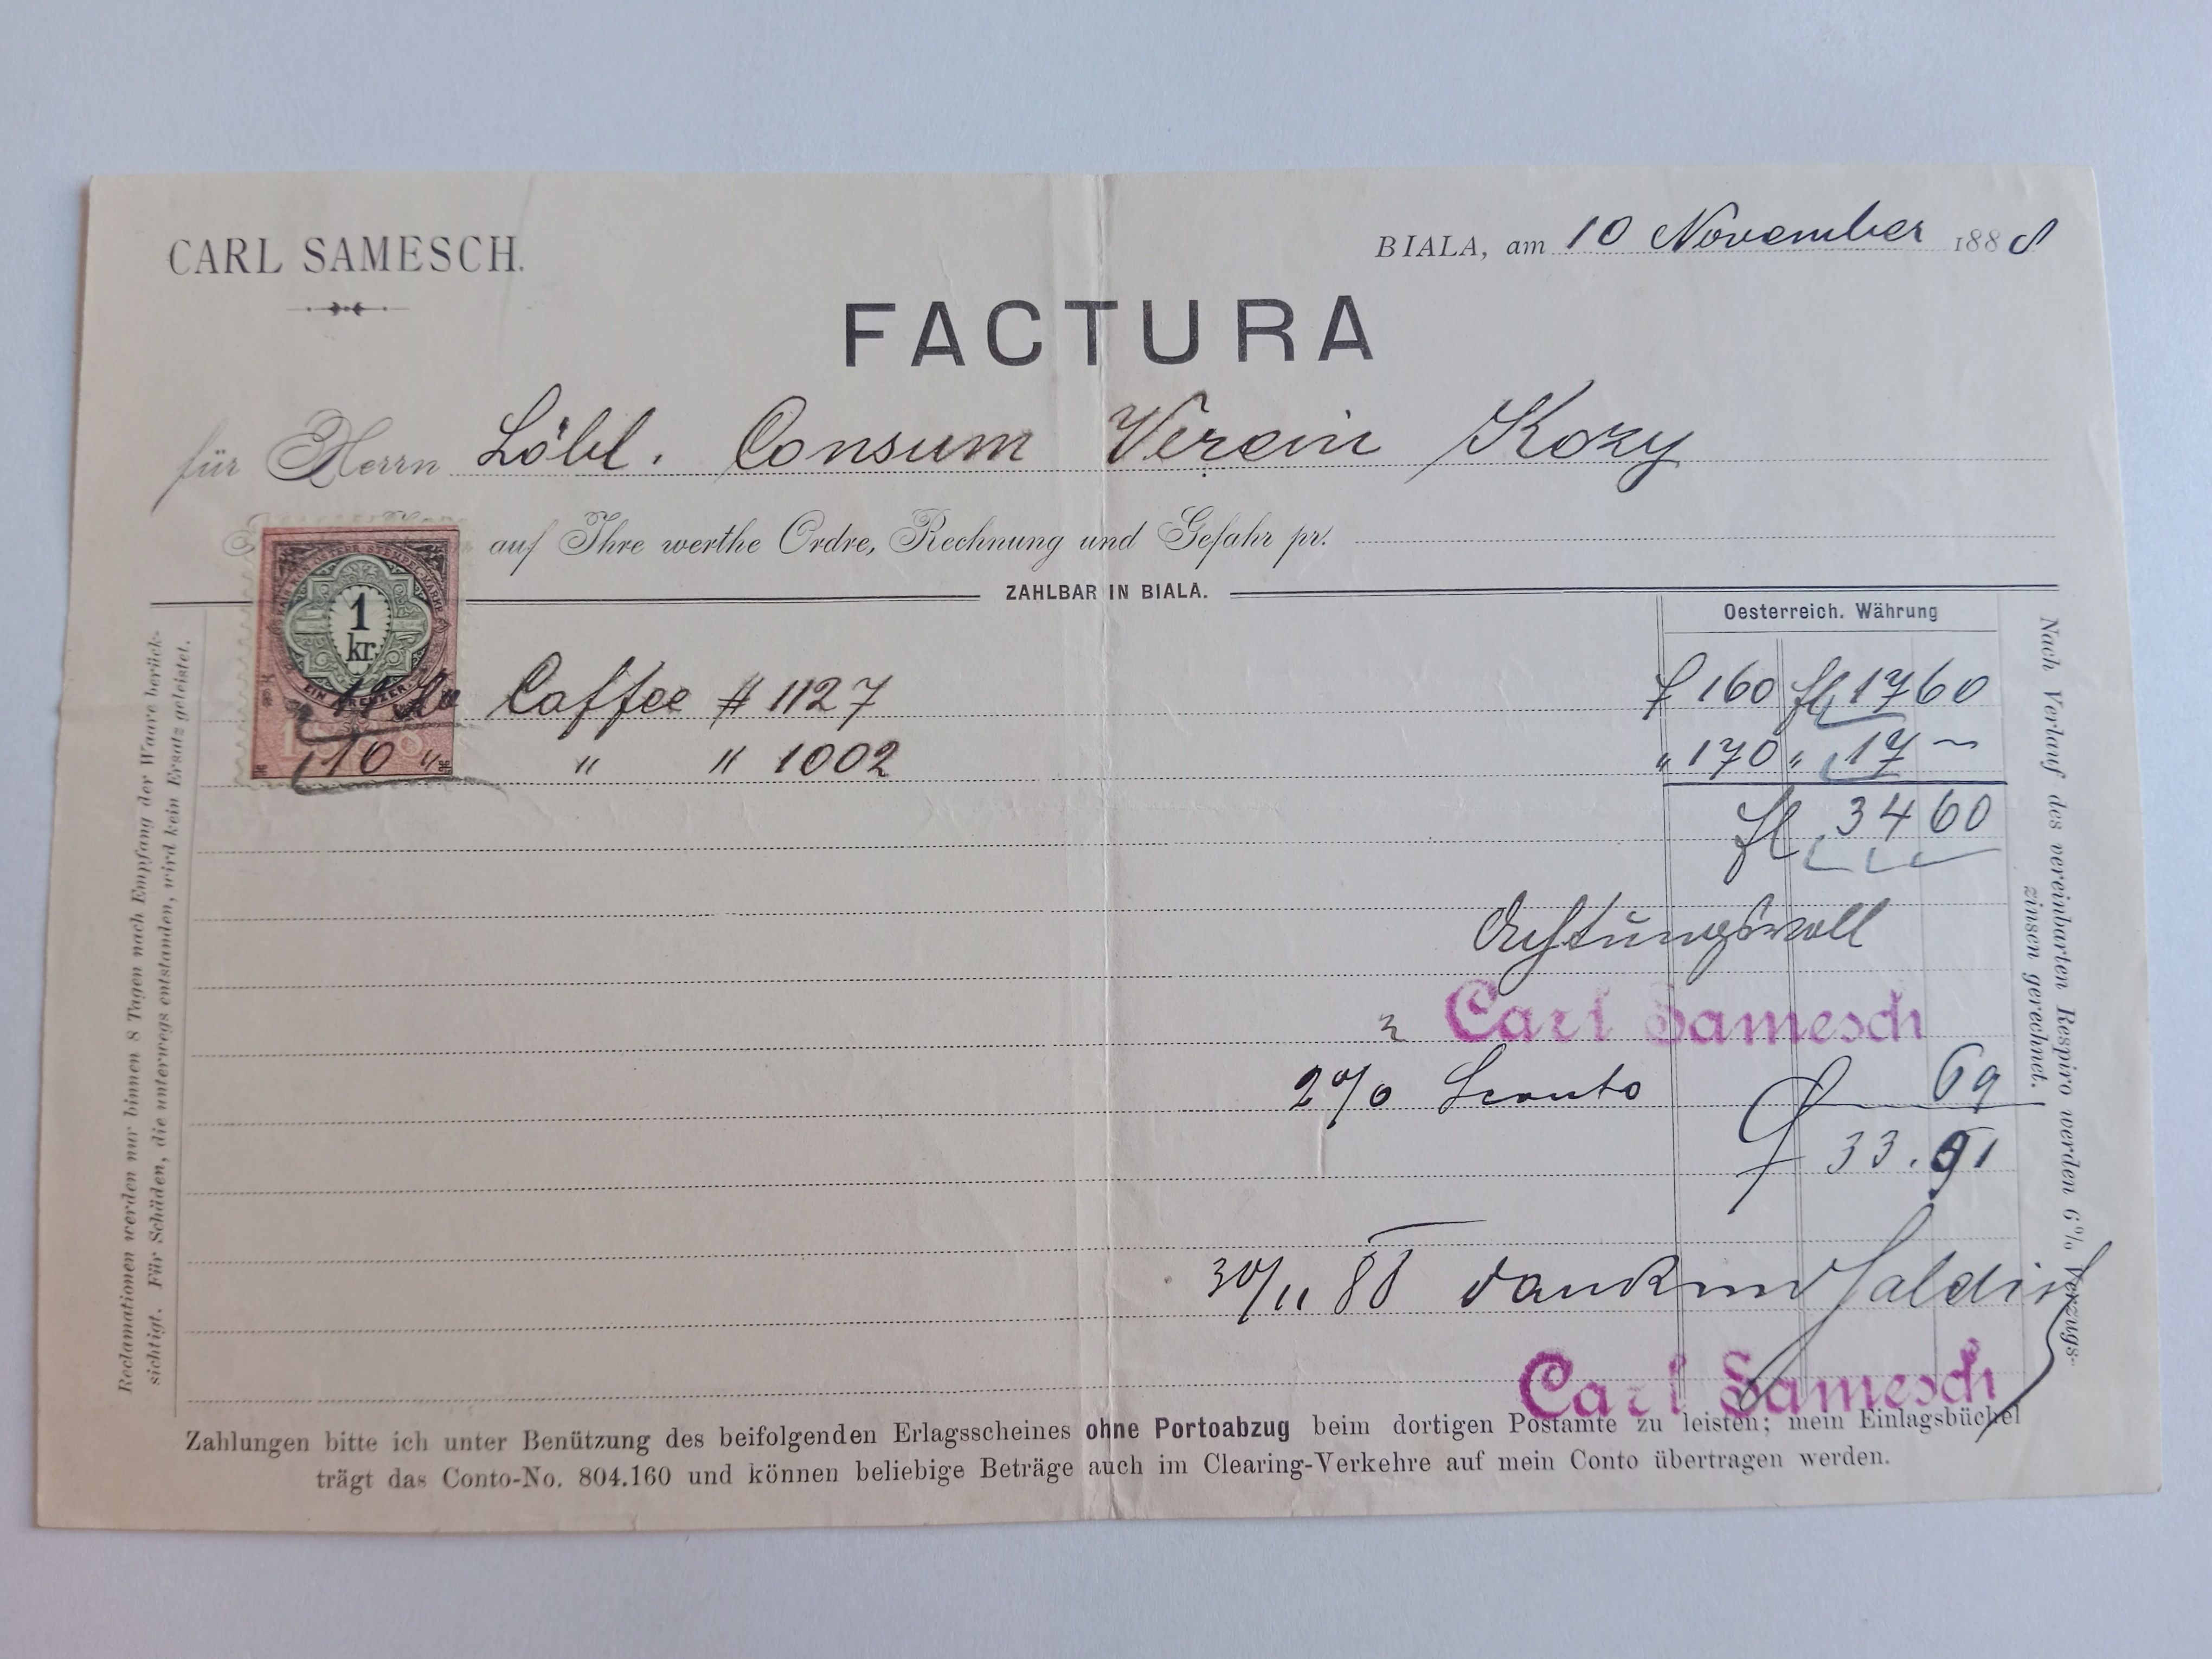 CARL SAMESCH.
BIALA, am 10 November 1888
FACTURA
für Herrn Löbl. Consum Verein Kozy
auf Ihre werthe Ordre, Rechnung und Gefahr pr.
ZAHLBAR IN BIALA.
Oesterreich. Währung
KAIS. KÖN. ÖSTERR. STEMPEL-MARKE
1
kr.
EIN KREUZER
11 Ko Caffee # 1127 f 160 fl 17 60
10 " " " 1002 " 170 " 17 ~
fl. 34 60
Achtungsvoll
Carl Samesch
2% Sconto 69
f 33.91
30/11 88 dankend saldirt
Carl Samesch
Zahlungen bitte ich unter Benützung des beifolgenden Erlagsscheines ohne Portoabzug beim dortigen Postamte zu leisten; mein Einlagsbüchel
trägt das Conto-No. 804.160 und können beliebige Beträge auch im Clearing-Verkehre auf mein Conto übertragen werden.
Reclamationen werden nur binnen 8 Tagen nach Empfang der Waare berück-
sichtigt. Für Schäden, die unterwegs entstanden, wird kein Ersatz geleistet.
Nach Verlauf des vereinbarten Respiro werden 6% Verzugs-
zinsen gerechnet.